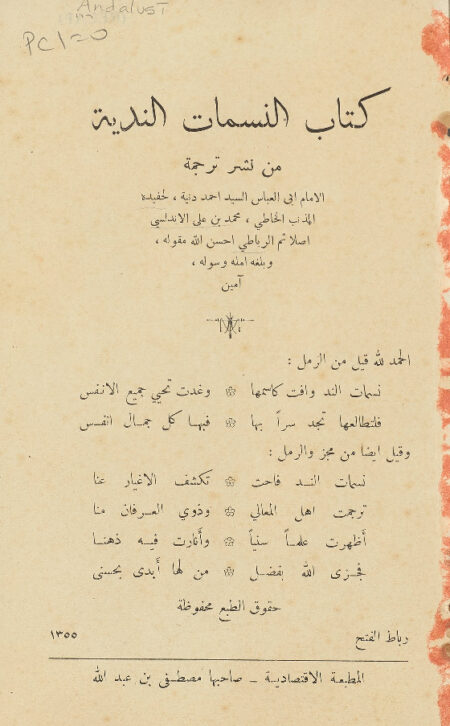 Andalusi
PC1=0
كتاب النسمات الندية
من نشر ترجمة
الامام ابى العباس السيد احمد دنية ، لحفيده
المذنب الخاطي ، محمد بن على الاندلسي
اصلا ثم الرباطي احسن الله مقوله ،
وبلغه امله وسوله ،
آمين
الحمد لله قيل من الرمل :
نسمات الند وافت كاسمها ۞ وغدت تحيي جميع الانفس
فلتطالعها تجد سراً بها ۞ فيها كل جمال انفس
وقيل ايضا من مجز والرمل :
نسمات النــد فاحت ۞ تكشف الاغيار عنا
ترجمت اهل المعالي ۞ وذوي العــرفان منا
أظهرت علمــاً سنياً ۞ وأنارت فيــه ذهنــا
فجــزى الله بفضــل ۞ من لها أبدى بحسنى
حقوق الطبع محفوظة
رباط الفتح ١٣٥٥
المطبعة الاقتصاديــة ــ صاحبها مصطفــى بن عبد الله